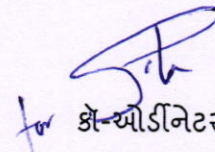 for કો-ઓર્ડીનેટર